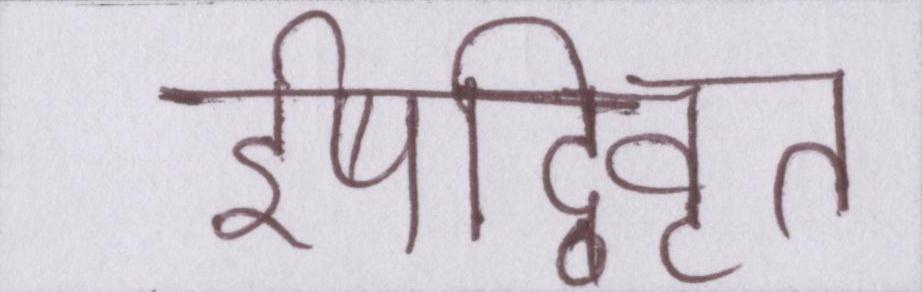 ईषद्विवृत